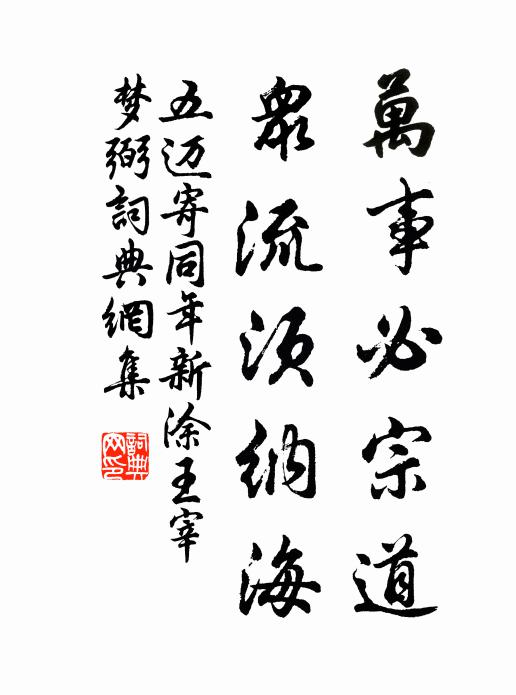 萬事必宗道
眾流須納海
五迈寄同年新涂王宰
梦弼詞典網集
詞典
网印